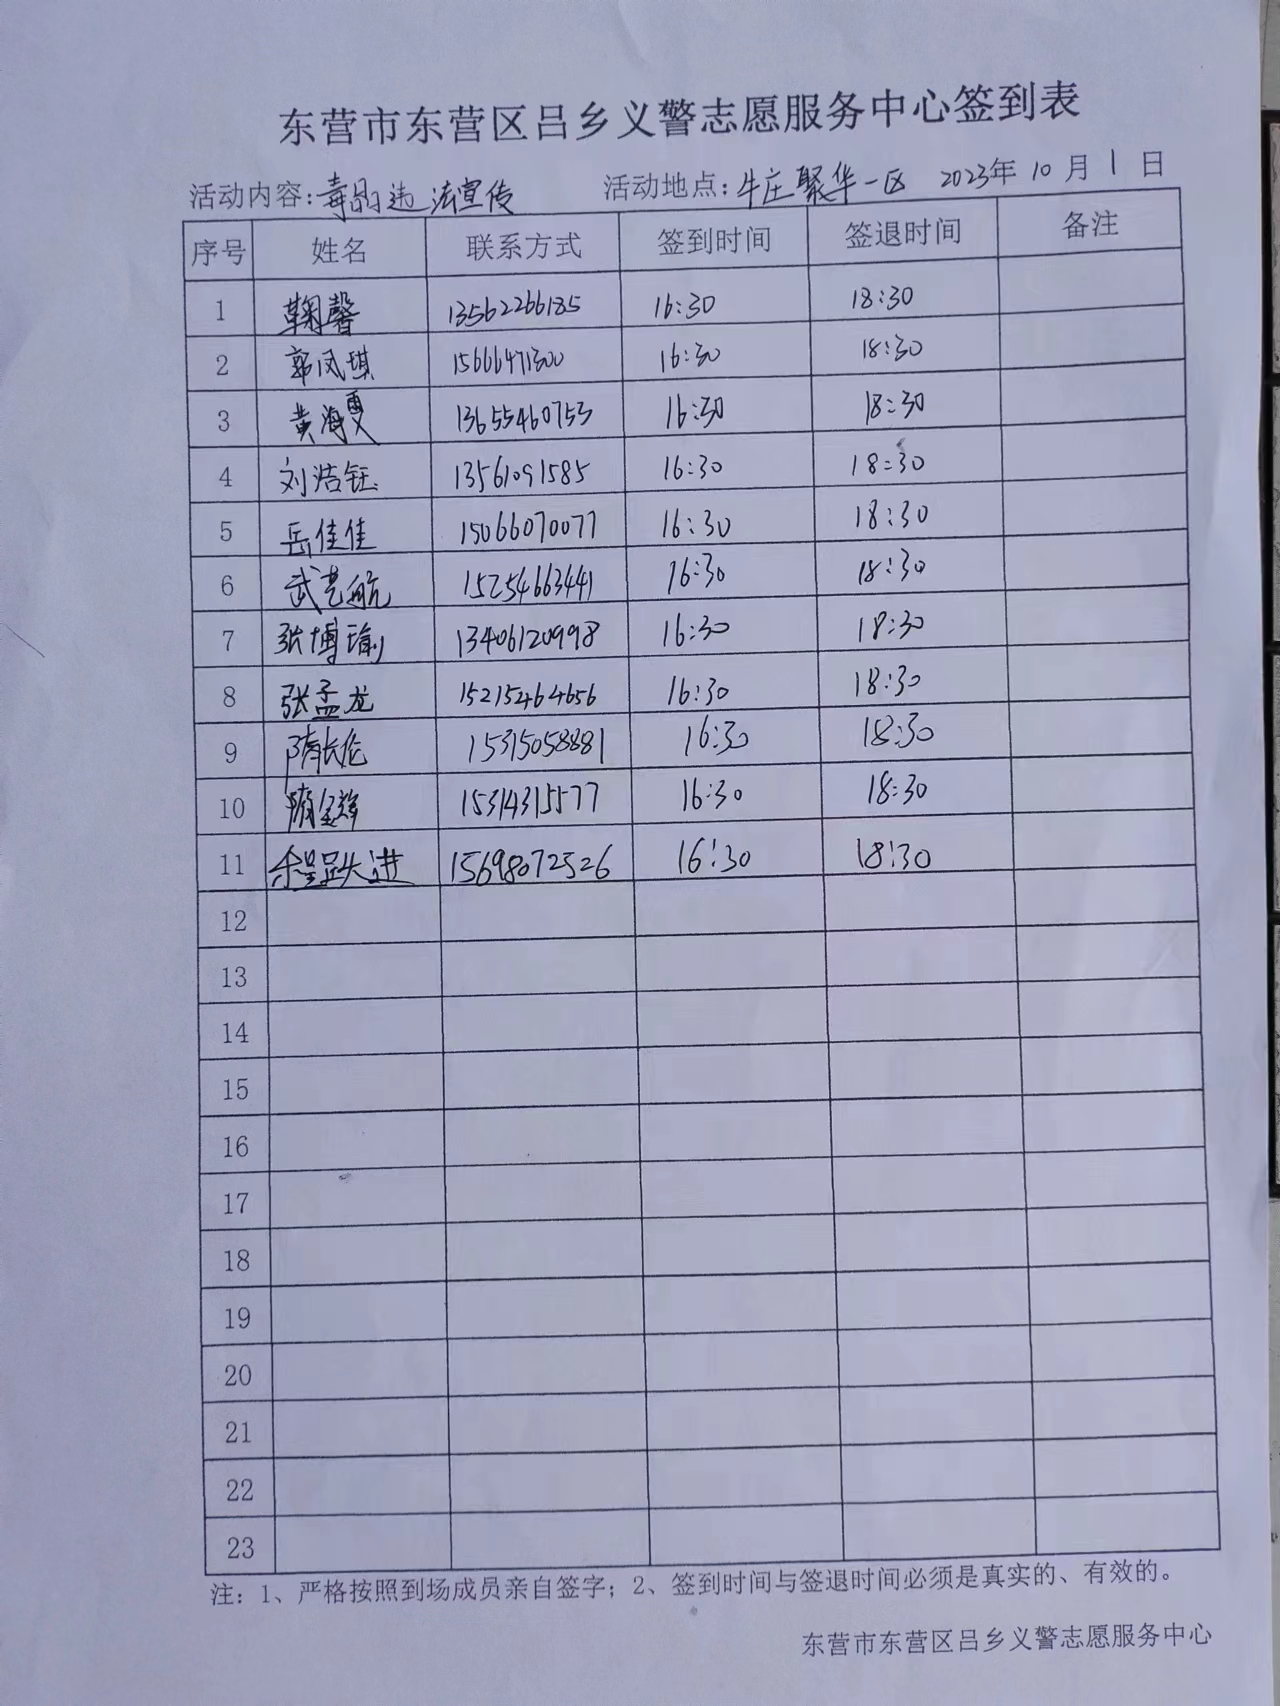 东营市东营区吕乡义警志愿服务中心签到表
活动内容:毒品违法宣传 活动地点:牛庄聚华一区 2023年10月1日
序号 姓名 联系方式 签到时间 签退时间 备注
1 鞠馨 13562266185 16:30 18:30
2 郭凤琪 15666471300 16:30 18:30
3 黄海雯 13655460753 16:30 18:30
4 刘浩钰 13561091585 16:30 18:30
5 岳佳佳 15066070077 16:30 18:30
6 武艺航 15254663441 16:30 18:30
7 张博瑜 13406120998 16:30 18:30
8 张孟龙 15215464656 16:30 18:30
9 隋长伦 15315058881 16:30 18:30
10 隋金辉 15314315577 16:30 18:30
11 跃进 15698072526 16:30 18:30
12
13
14
15
16
17
18
19
20
21
22
23
注:1、严格按照到场成员亲自签字;2、签到时间与签退时间必须是真实的、有效的。
东营市东营区吕乡义警志愿服务中心